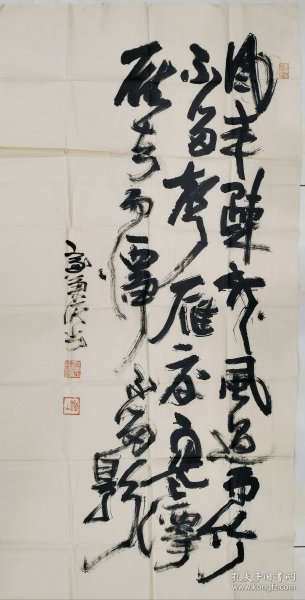 風来疎竹風過而竹
不留聲雁度寒潭
雁去而潭不留影
孔夫子旧书网